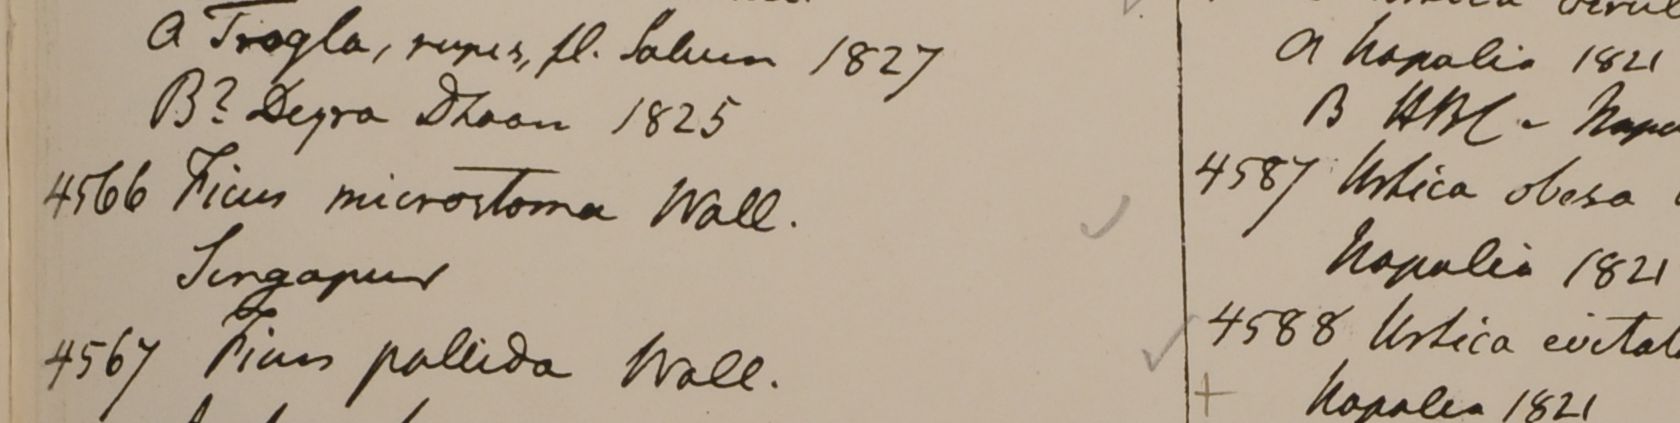 A Trogla, rupes, fl. Saluen 1827
B? Deyra Dhoon 1825
4566 Ficus microstoma Wall.
Singapur
4567 Ficus pallida Wall.
Urtica
A Napalia 1821
B HBC -
4587 Urtica obesa
Napalia 1821
4588 Urtica
+ Napalia 1821